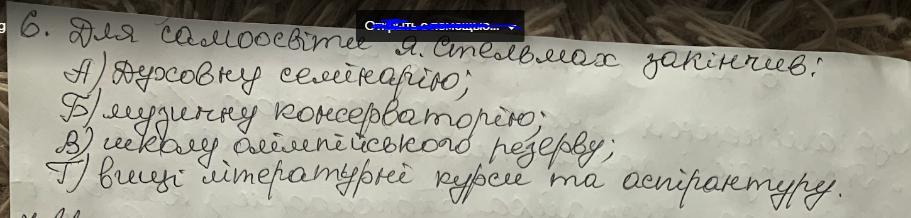 6. Для самоосвіти Я. Стельмах закінчив:
А) Духовну семінарію;
Б) музичну консерваторію;
В) школу олімпійського резерву;
Г) вищі літературні курси та аспірантуру.